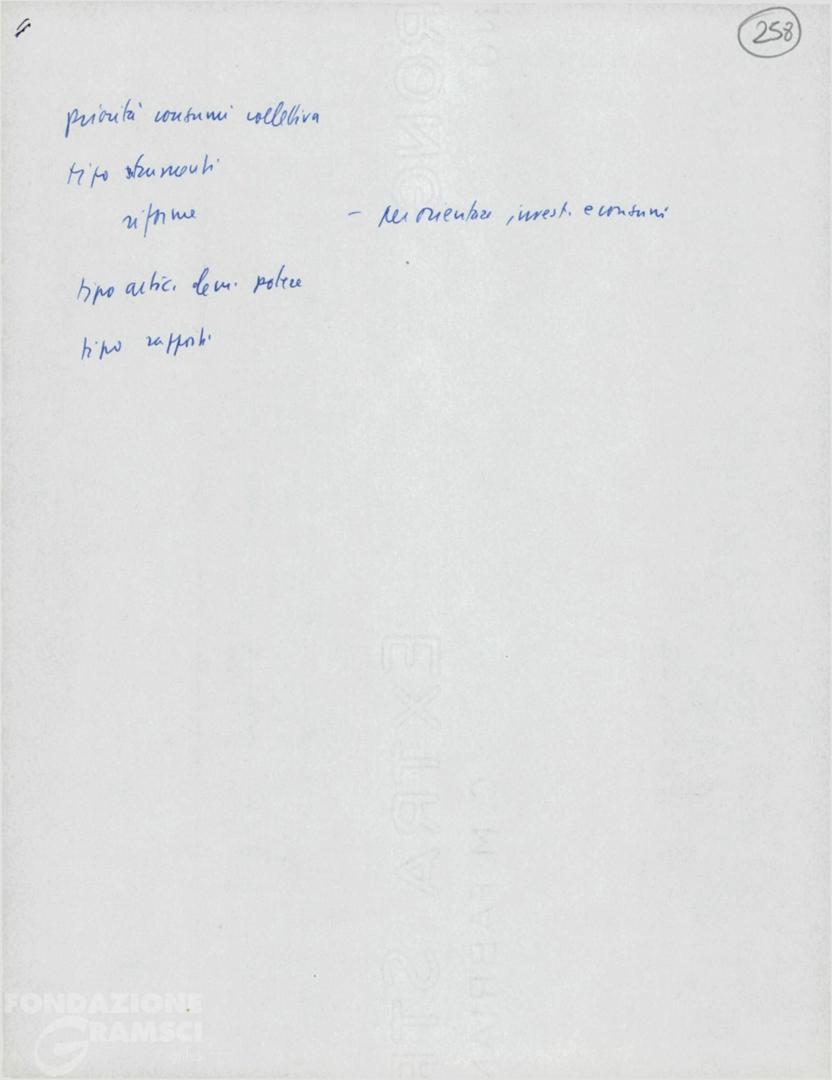 258
priorità consumi collettiva
tipo strumenti
riforme – per orientare invest. e consumi
tipo artic. dem. potere
tipo rapporti
EXTRA ST
C.M. FABRIAN
FONDAZIONE
GRAMSCI
onlus